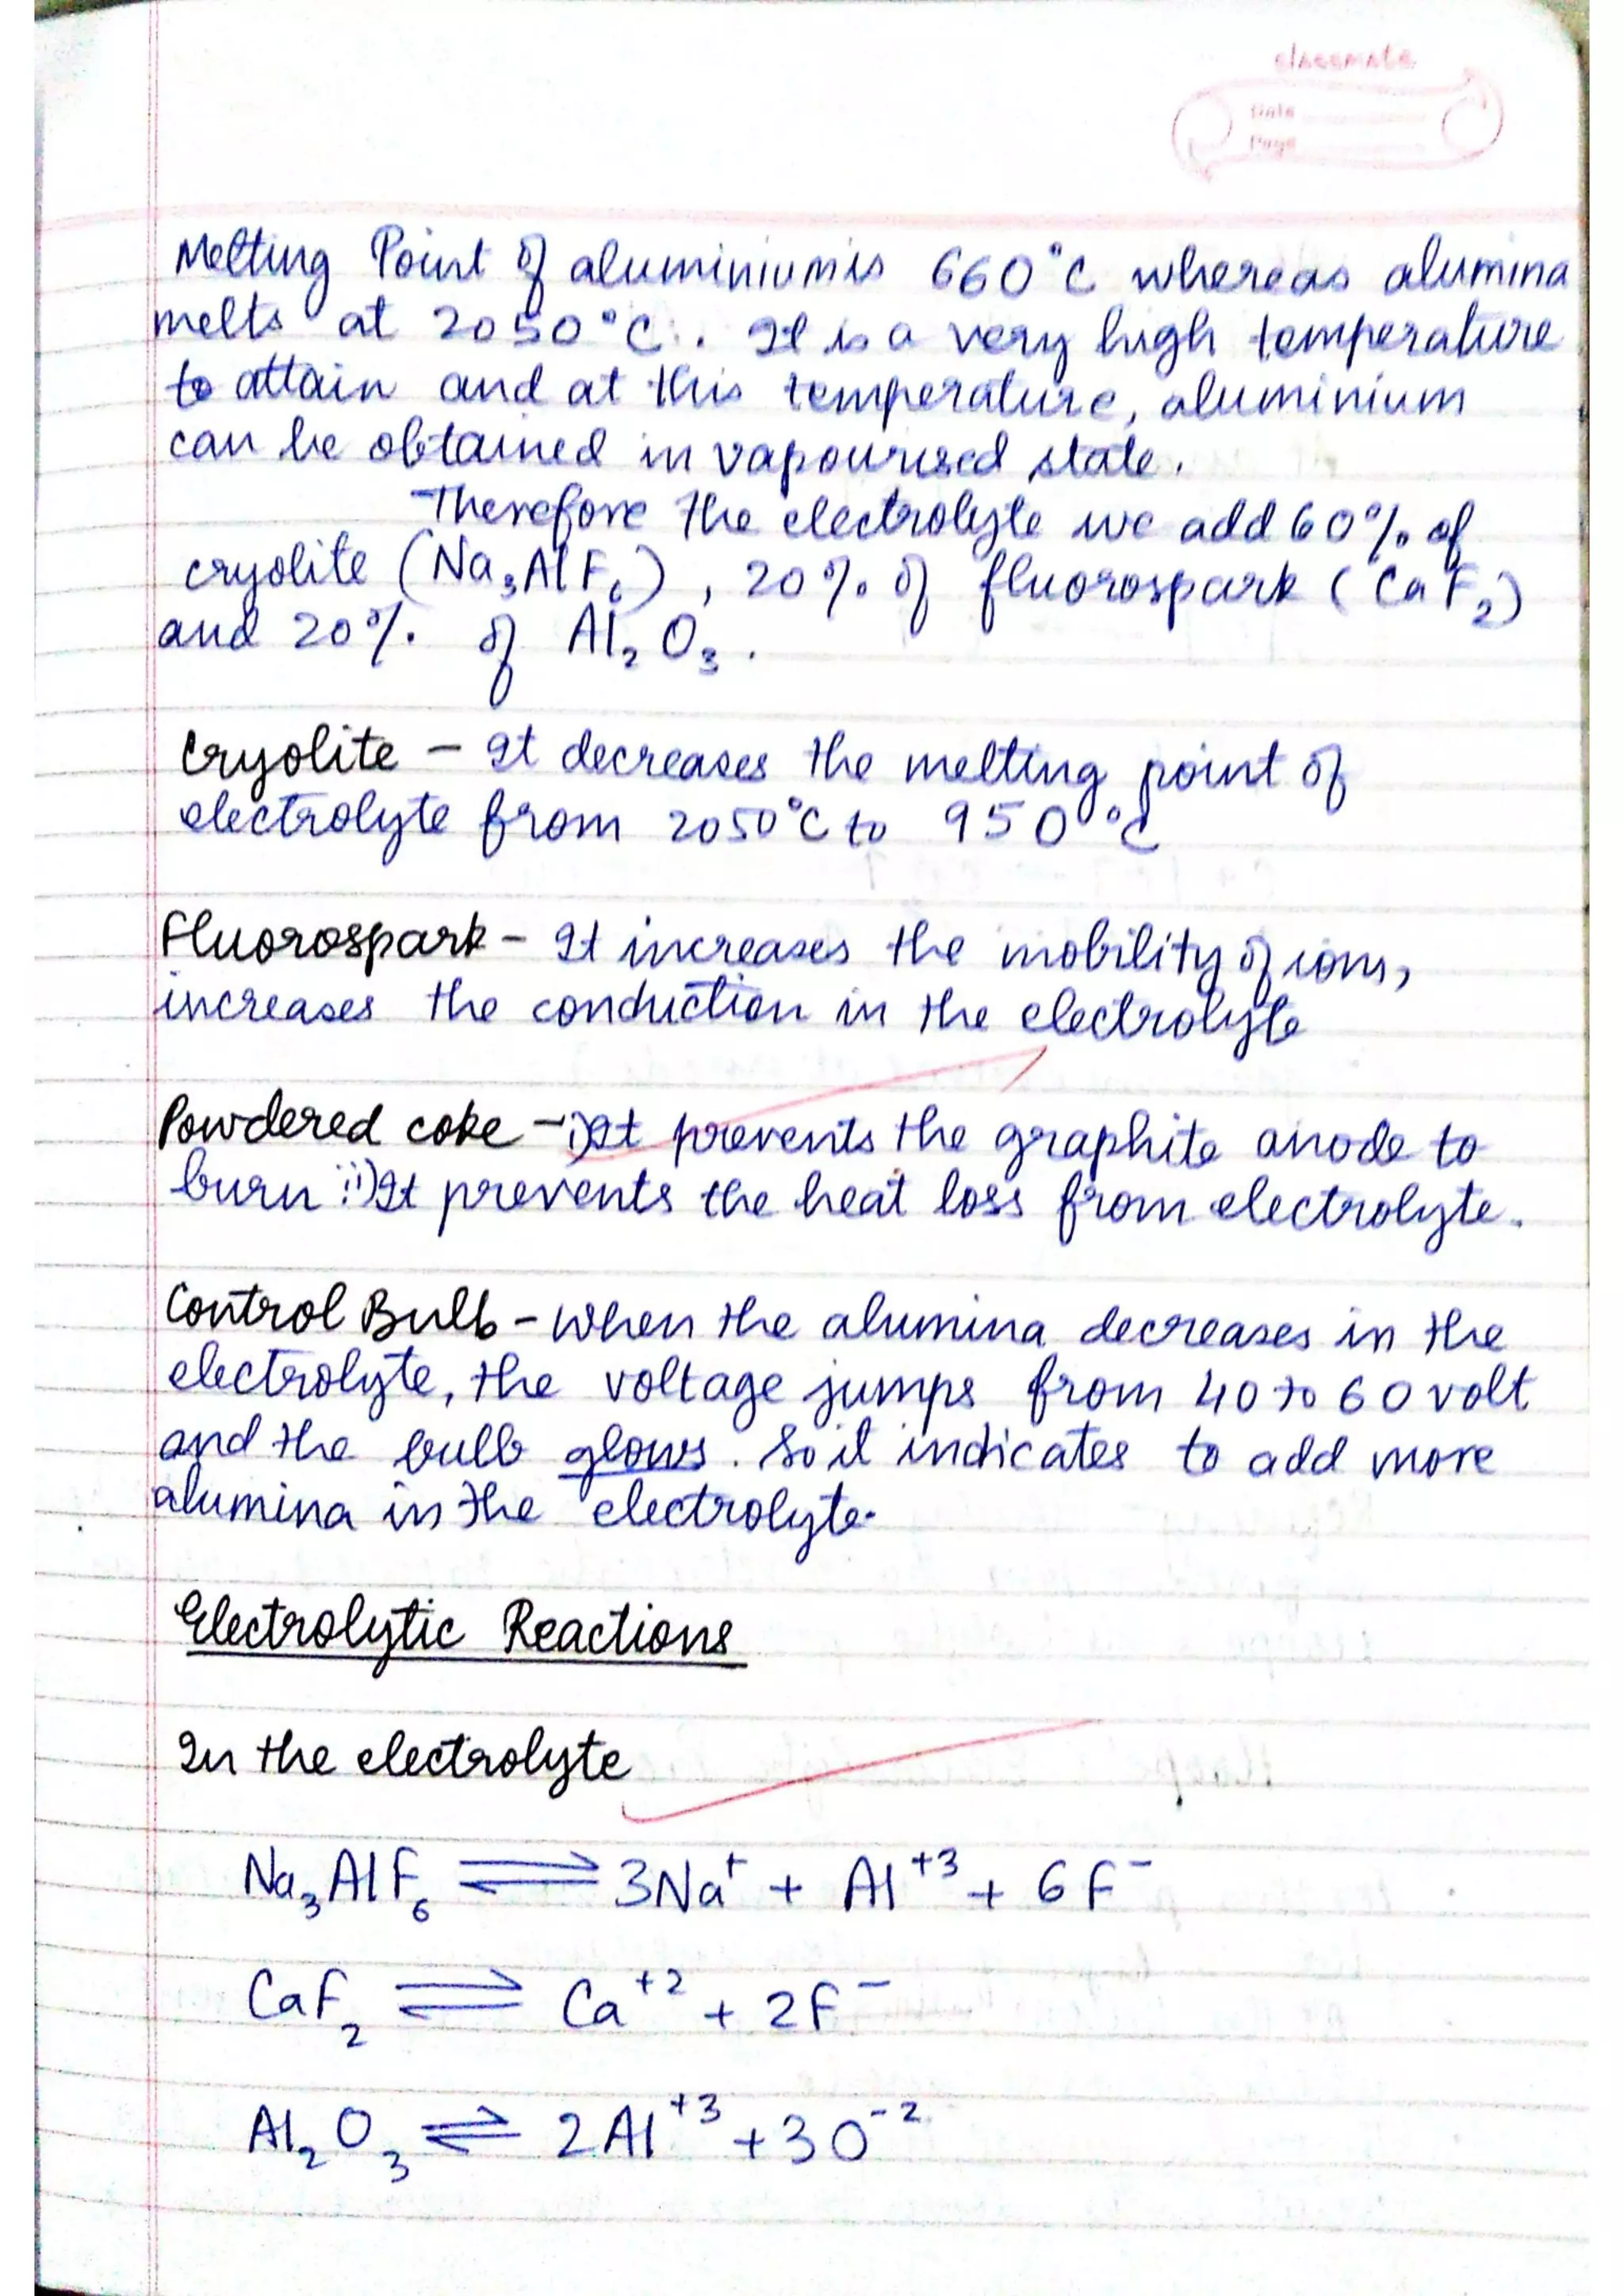 classmate
Date
Page
Melting Point of aluminium is 660°C whereas alumina
melts at 2050°C. It is a very high temperature
to attain and at this temperature, aluminium
can be obtained in vapourised state.
Therefore the electrolyte we add 60% of
cryolite (Na₃AlF₆), 20% of fluorospark (CaF₂)
and 20% of Al₂O₃.
Cryolite - It decreases the melting point of
electrolyte from 2050°C to 950°C
Fluorospark - It increases the mobility of ions,
increases the conduction in the electrolyte
Powdered coke - i) It prevents the graphite anode to
burn ii) It prevents the heat loss from electrolyte.
Control Bulb - When the alumina decreases in the
electrolyte, the voltage jumps from 40 to 60 volt
and the bulb glows. So it indicates to add more
alumina in the electrolyte.
Electrolytic Reactions
In the electrolyte
Na₃AlF₆ ⇌ 3Na⁺ + Al⁺³ + 6F⁻
CaF₂ ⇌ Ca⁺² + 2F⁻
Al₂O₃ ⇌ 2Al⁺³ + 3O⁻²